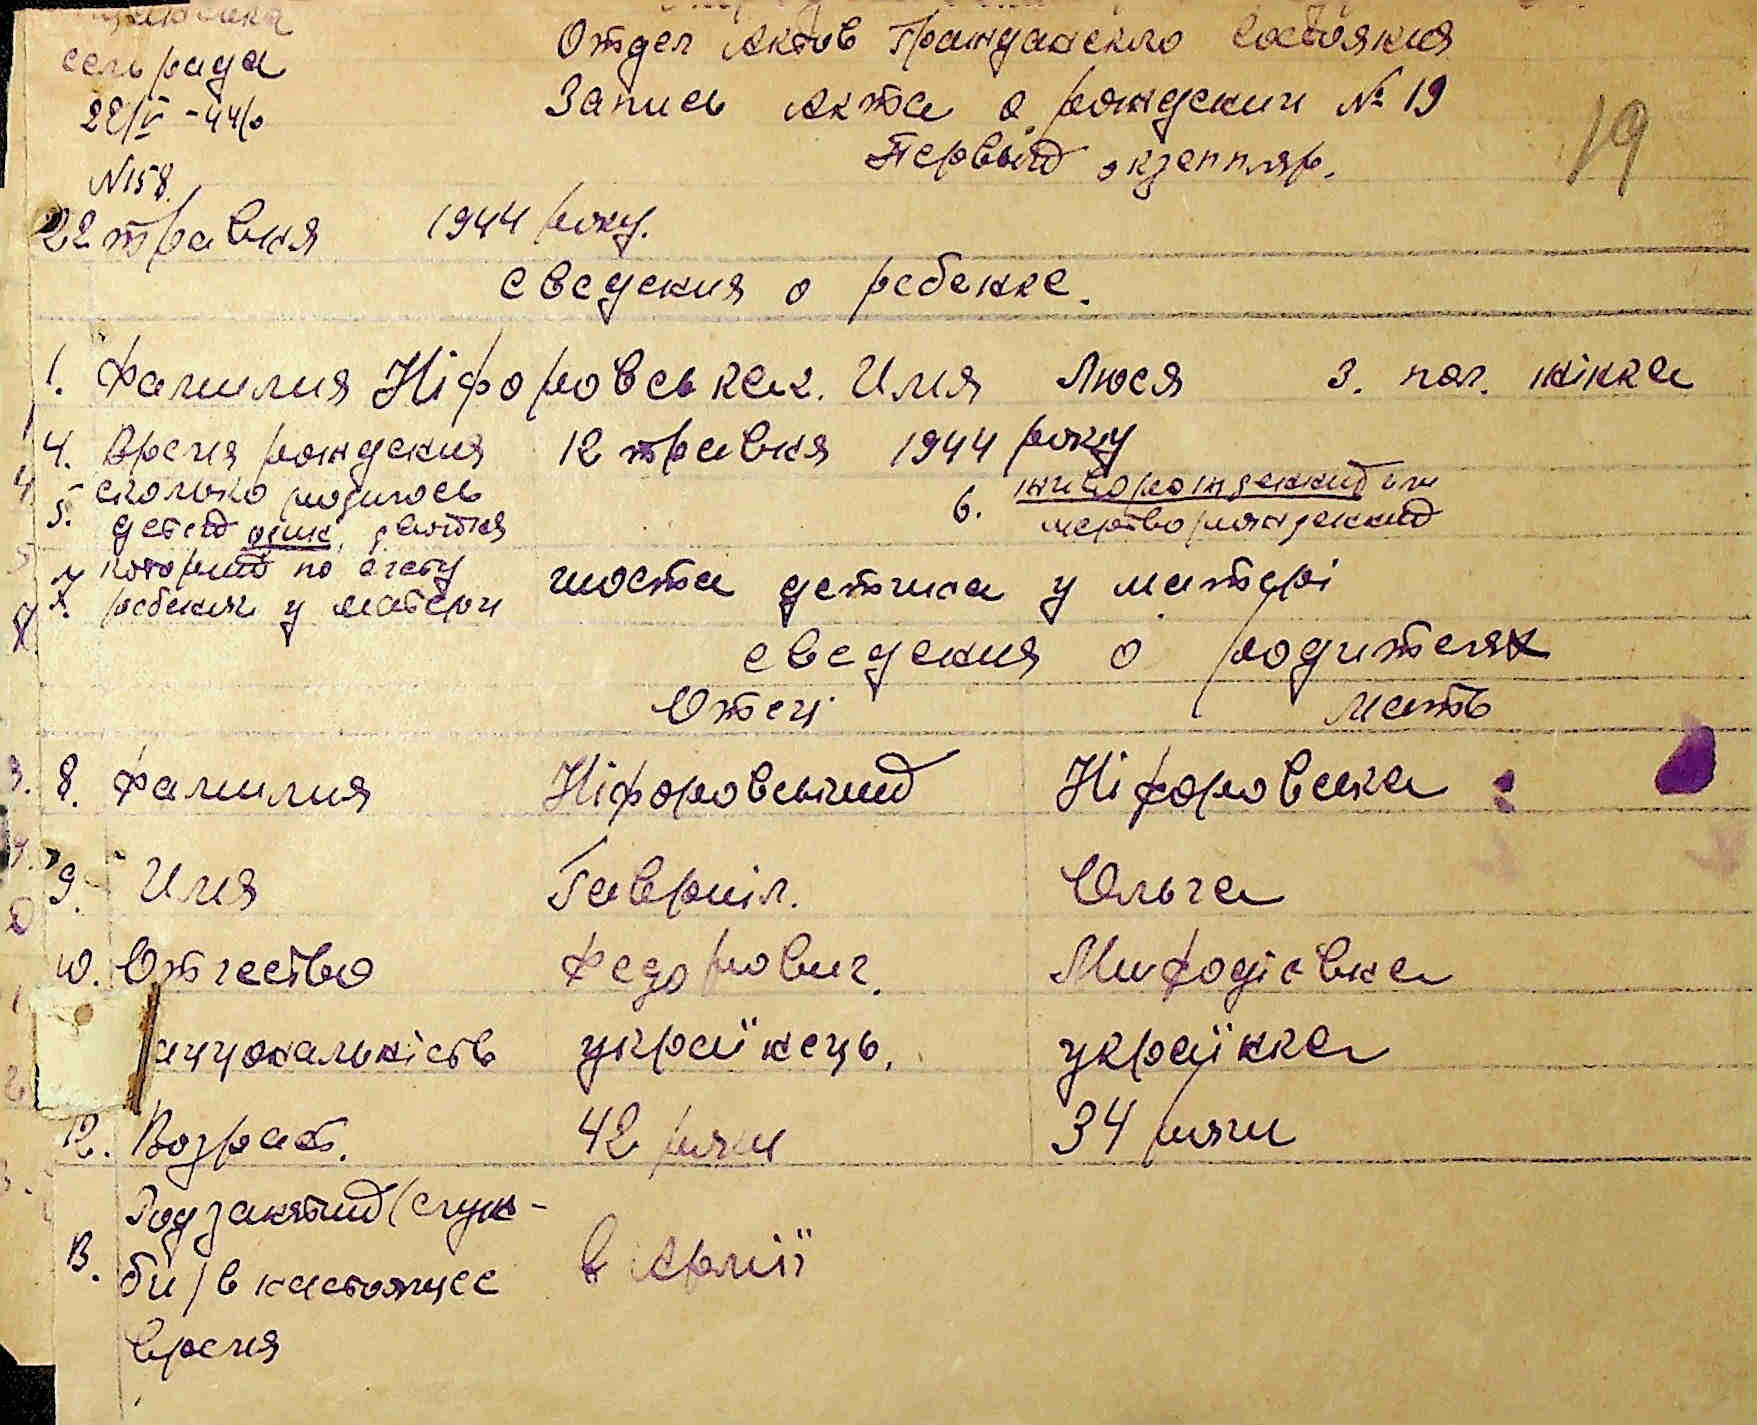 сельрада
22/V - 44 р
N 158.
Отдел Актов Гражданского Состояния
Запись Акта о рождении № 19
Первый экземпляр.
19
22 травня 1944 року.
сведения о ребенке.
1. Фамилия Ніфоровська. Имя Люся 3. пол. жінка
4. Время рождения 12 травня 1944 року
5. сколько родилось
детей один, двойня
6. живорожденный или
мертворожденный
7. который по счету
ребенок у матери шоста дитина у матері
сведения о родителях
Отец Мать
8. Фамилия Ніфоровський Ніфоровська
9. Имя Гавриіл. Ольга
10. Отчество Федорович. Мифодієвна
аціональність українець. українка
12. Возраст. 42 роки 34 роки
13. Род занятий (служ-
би) в настоящее
время в Армії